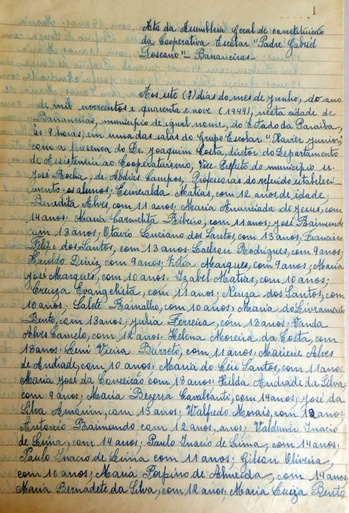 1
Ata da Assembléia Geral de constituição
da Cooperativa Escolar "Padre Gabriel
Toscano" - Bananeiras -
Aos oito (8) dias do mes de junho, do ano
de mil novecentos e quarenta e nove (1949), nesta cidade de
Bananeiras, municipio de igual nome, do Estado da Paraiba,
às 9 horas, em uma das salas do Grupo Escolar "Xavier Junior",
com a presença do Dr. Joaquim Costa, diretor do Departamento
de Assistencia ao Cooperativismo, Vice-Prefeito do municipio sr.
José Rocha, de Abdias Campos, Professoras do referido estabeleci-
mento, os alunos: Esmeralda Matias, com 12 anos de idade,
Benedita Alves, com 11 anos; Maria Anunciada de Jesus, com
14 anos; Maria Carmelita Ribeiro, com 11 anos; José Raimundo
com 13 anos; Otavio Luciano dos Santos, com 13 anos; Francisco
Felix dos Santos, com 13 anos; Rodrigues, com 9 anos;
Haroldo Diniz, com 9 anos; Marques, com 9 anos; Maria
José Marques, com 10 anos; Izabel Matias, com 10 anos;
Creuza Evangelista, com 11 anos; Neuza dos Santos, com
10 anos; Salete Ramalho, com 10 anos; Maria do Livramento
Bento, com 13 anos; Julia Ferreira, com 13 anos; Vanda
Alves Camelo, com 12 anos; Helena Moreira da Costa, com
13 anos; Leni Vieira Barreto, com 11 anos; Marieize Alves
de Andrade, com 10 anos; Maria do Céu Santos, com 11 anos;
Maria José da Conceição com 13 anos; Hilda Andrade da Silva
com 9 anos; Maria Bezerra Cavalcanti, com 14 anos; José da
Silva Amorim, com 13 anos; Walfredo Morais, com 12 anos;
Antonio Raimundo com 12 anos; Valdemir Inacio
de Lima, com 14 anos; Paulo Inacio de Lima, com 14 anos;
Paulo Inacio de Lima com 11 anos; Gilson Oliveira,
com 10 anos; Maria Porpino de Almeida, com 14 anos;
Maria Bernadete da Silva, com 12 anos; Maria Creuza Bento